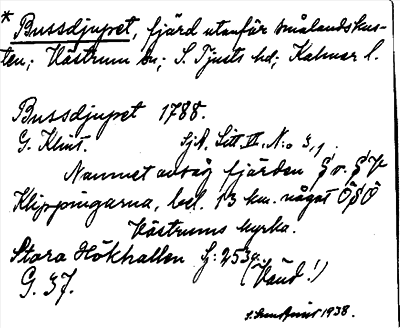 * Bussdjupet, fjärd utanför smålandskus-
ten; Västrum sn; S. Tjusts hd; Kalmar l.
Bussdjupet 1788.
G. Klint. Sjk. Litt. N:o 3,1.
Namnet avsåg fjärden S v. S V
Klippingarna, bel. 13 km. något ÖSÖ
Västrums kyrka.
Stora Hökhallen h: 2534.
G. 37. (Vänd!)
1938.